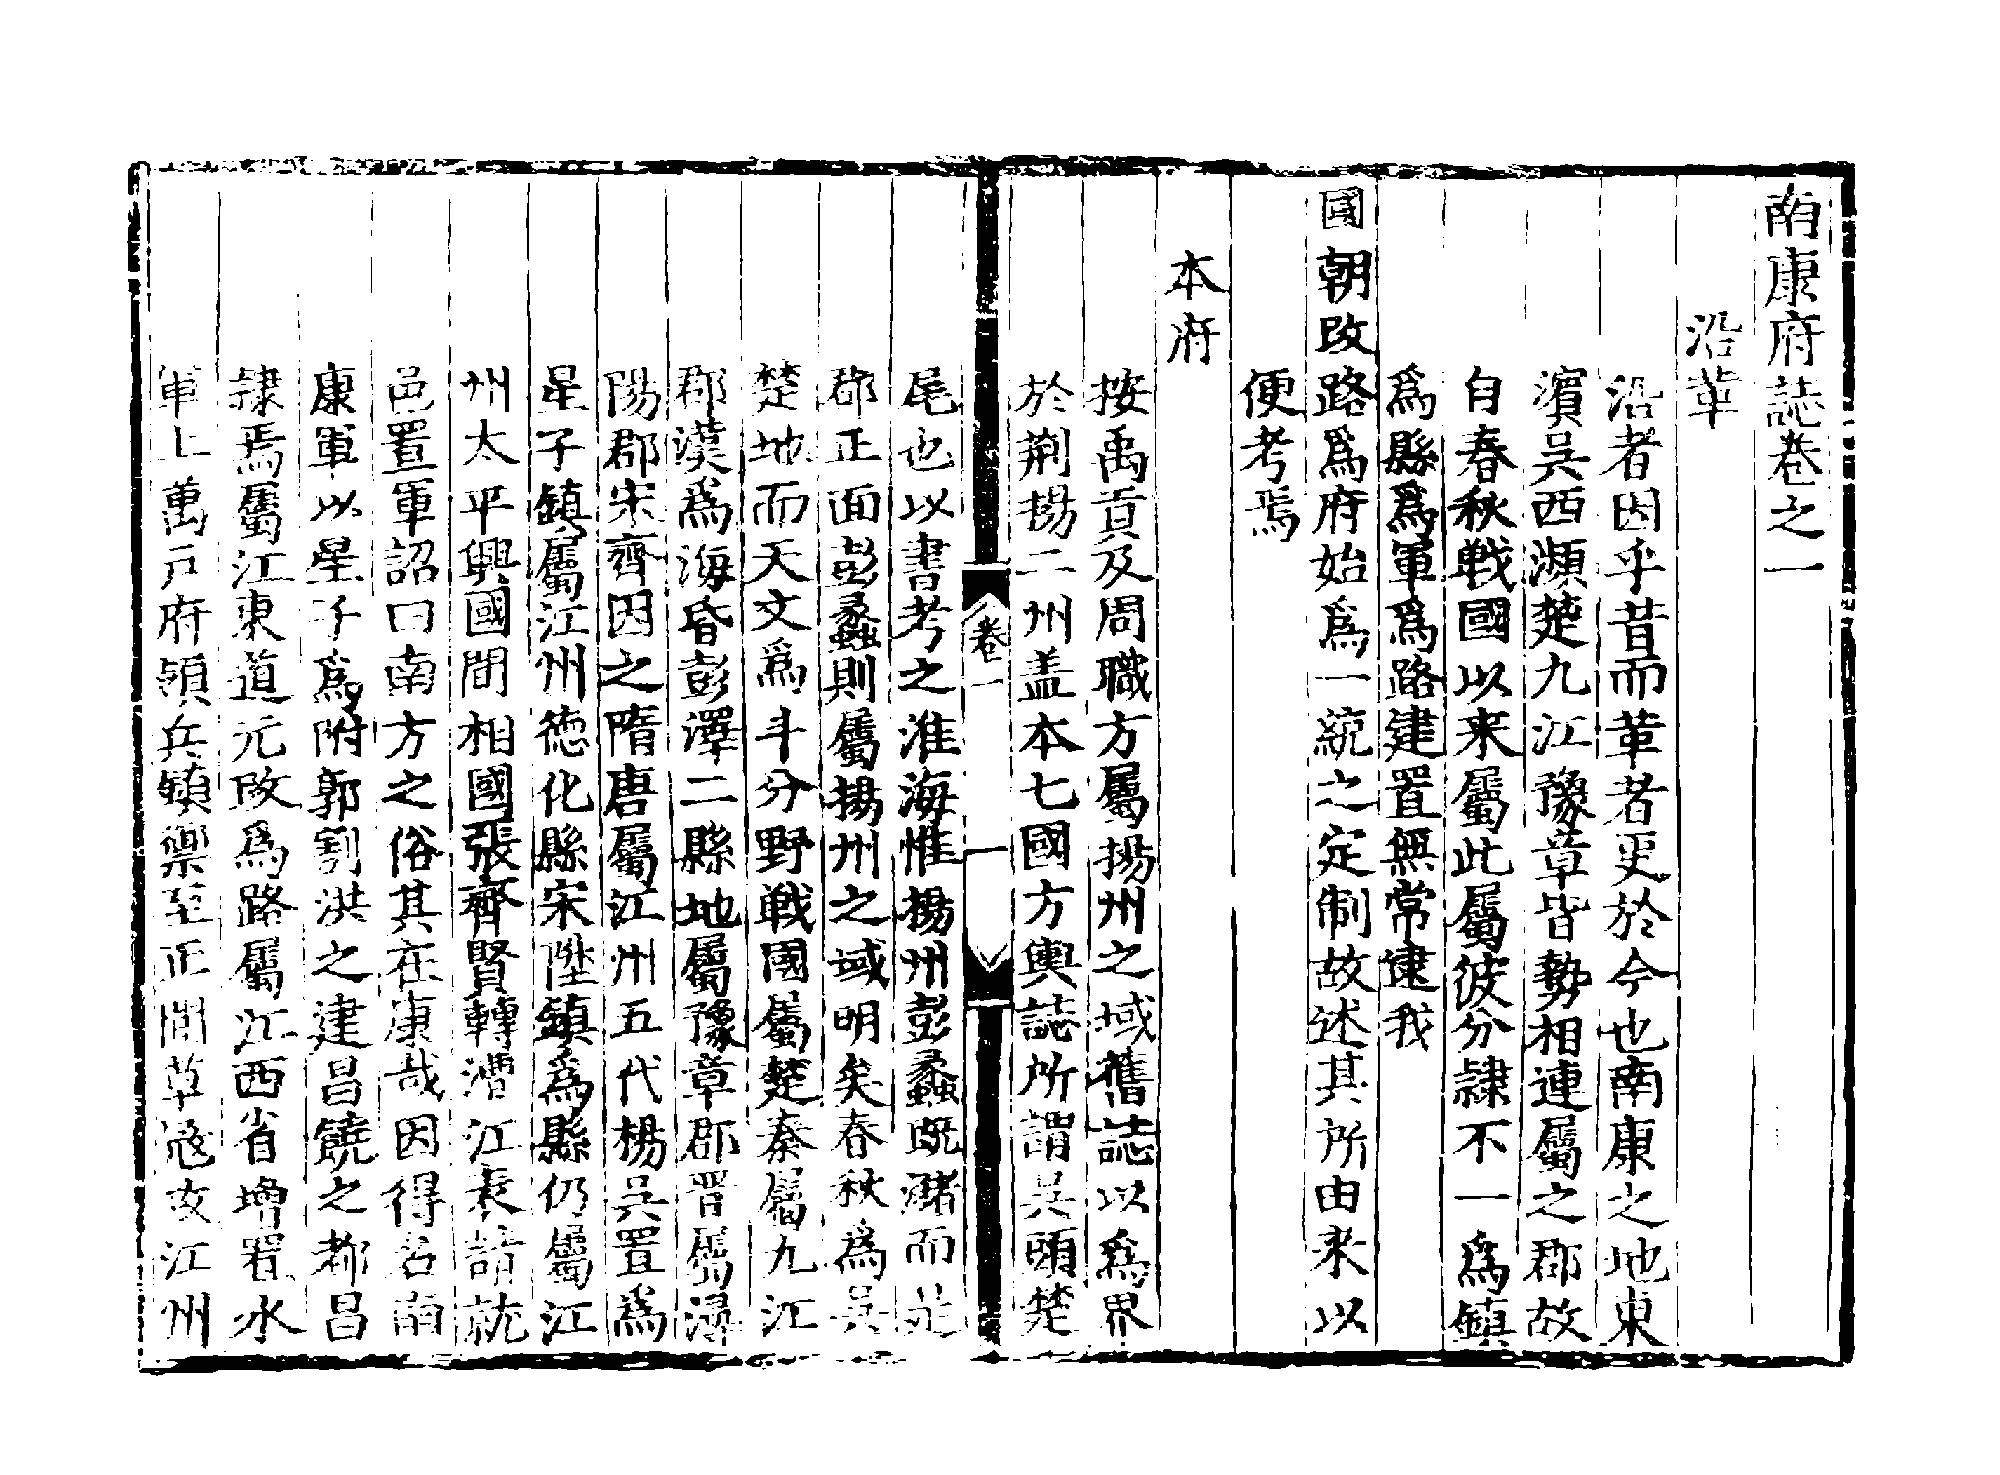 南康府誌卷之一
沿革
沿者因乎昔而革者更於今也南康之地東
濱吳西瀕楚九江豫章皆勢相連屬之郡故
自春秋戰國以來屬此屬彼分隸不一為鎮
為縣為軍為路建置無常逮我
國朝改路為府始為一統之定制故述其所由來以
便考焉
本府
按禹貢及周職方屬揚州之域舊誌以為界
於荆揚二州盖本七國方輿誌所謂吳頭楚
卷一
一
尾也以書考之淮海惟揚州彭蠡既瀦而茲
郡正面彭蠡則屬揚州之域明矣春秋為吳
楚地而天文為斗分野戰國屬楚秦屬九江
郡漢為海昏彭澤二縣地屬豫章郡晋屬潯
陽郡宋齊因之隋唐屬江州五代楊吳置為
星子鎮屬江州德化縣宋陞鎮為縣仍屬江
州太平興國間相國張齊賢轉漕江表請就
邑置軍詔曰南方之俗其在康哉因得名南
康軍以星子為附郭割洪之建昌饒之都昌
隸焉屬江東道元改為路屬江西省增置水
軍上萬戶府領兵鎮禦至正間草寇攻江州